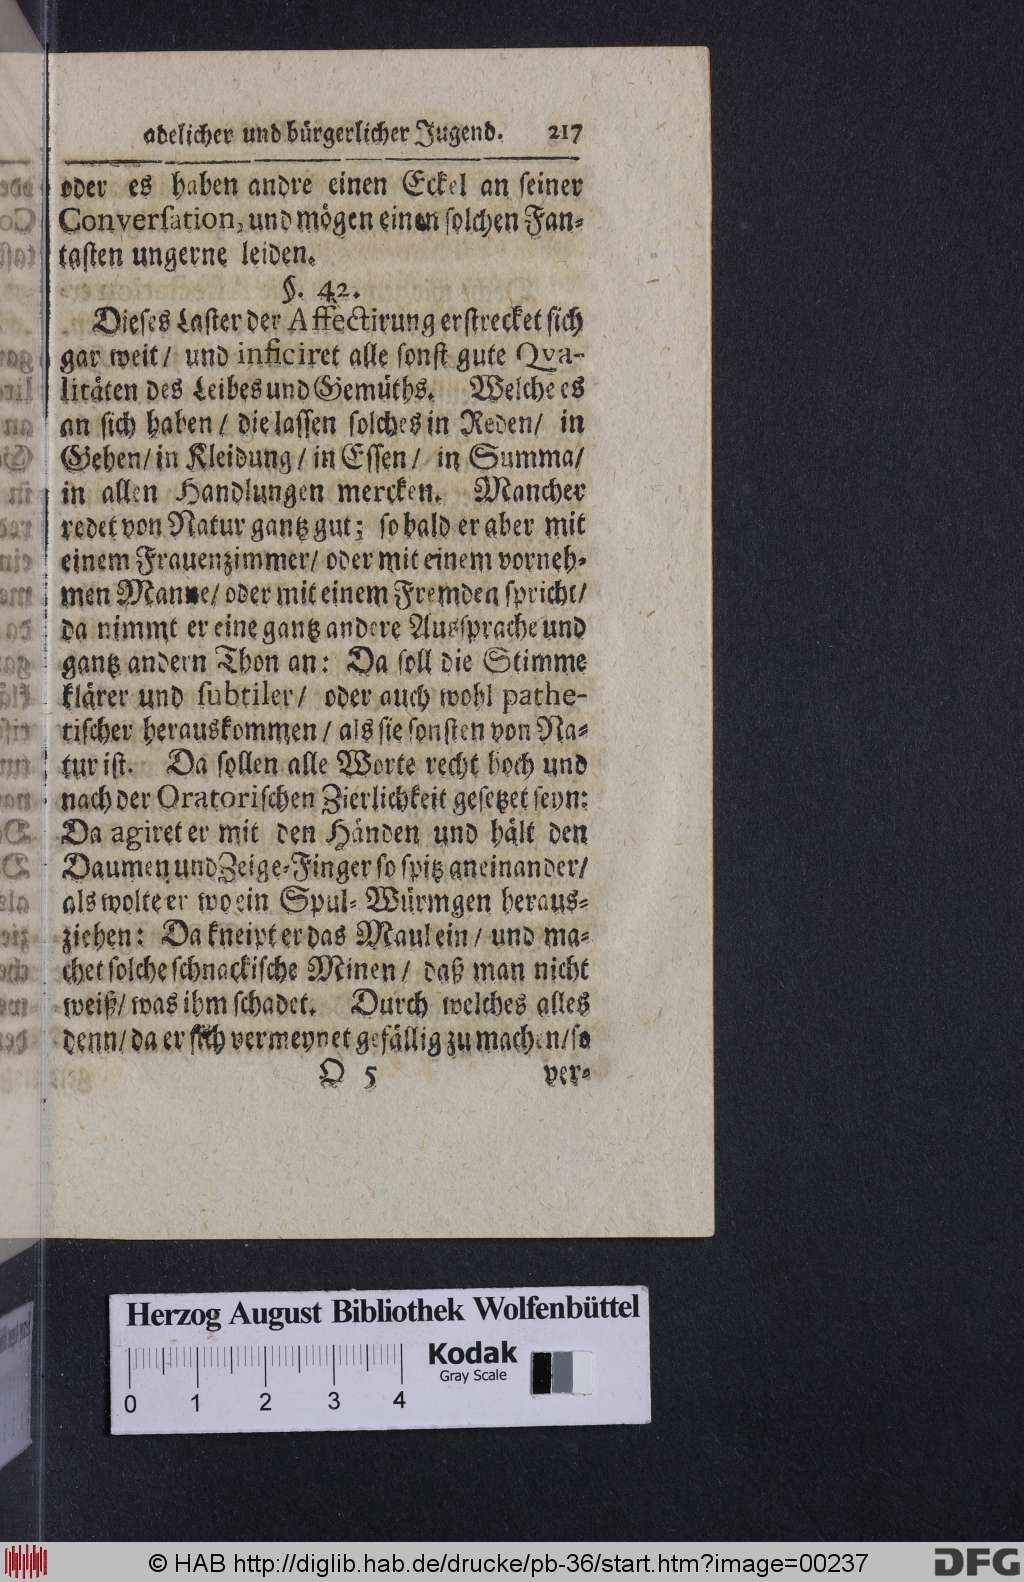 adelicher und bürgerlicher Jugend. 217
oder es haben andre einen Eckel an seiner
Conversation, und mögen einen solchen Fan-
tasten ungerne leiden.
§. 42.
Dieses Laster der Affectirung erstrecket sich
gar weit/ und inficiret alle sonst gute Qva-
litäten des Leibes und Gemüths. Welche es
an sich haben/ die lassen solches in Reden/ in
Gehen/ in Kleidung/ in Essen/ in Summa/
in allen Handlungen mercken. Mancher
redet von Natur gantz gut; so bald er aber mit
einem Frauenzimmer/ oder mit einem vorneh-
men Manne/ oder mit einem Fremden spricht/
da nimmt er eine gantz andere Aussprache und
gantz andern Thon an: Da soll die Stimme
klärer und subtiler/ oder auch wohl pathe-
tischer herauskommen/ als sie sonsten von Na-
tur ist. Da sollen alle Worte recht hoch und
nach der Oratorischen Zierlichkeit gesetzet seyn:
Da agiret er mit den Händen und hält den
Daumen und Zeige-Finger so spitz aneinander/
als wolte er wo ein Spul-Würmgen heraus-
ziehen: Da kneipt er das Maul ein/ und ma-
chet solche schnackische Minen/ daß man nicht
weiß/ was ihm schadet. Durch welches alles
denn/ da er sich vermeynet gefällig zu machen/ so
O 5 ver-
Herzog August Bibliothek Wolfenbüttel
Kodak
Gray Scale
0 1 2 3 4
© HAB http://diglib.hab.de/drucke/pb-36/start.htm?image=00237
DFG